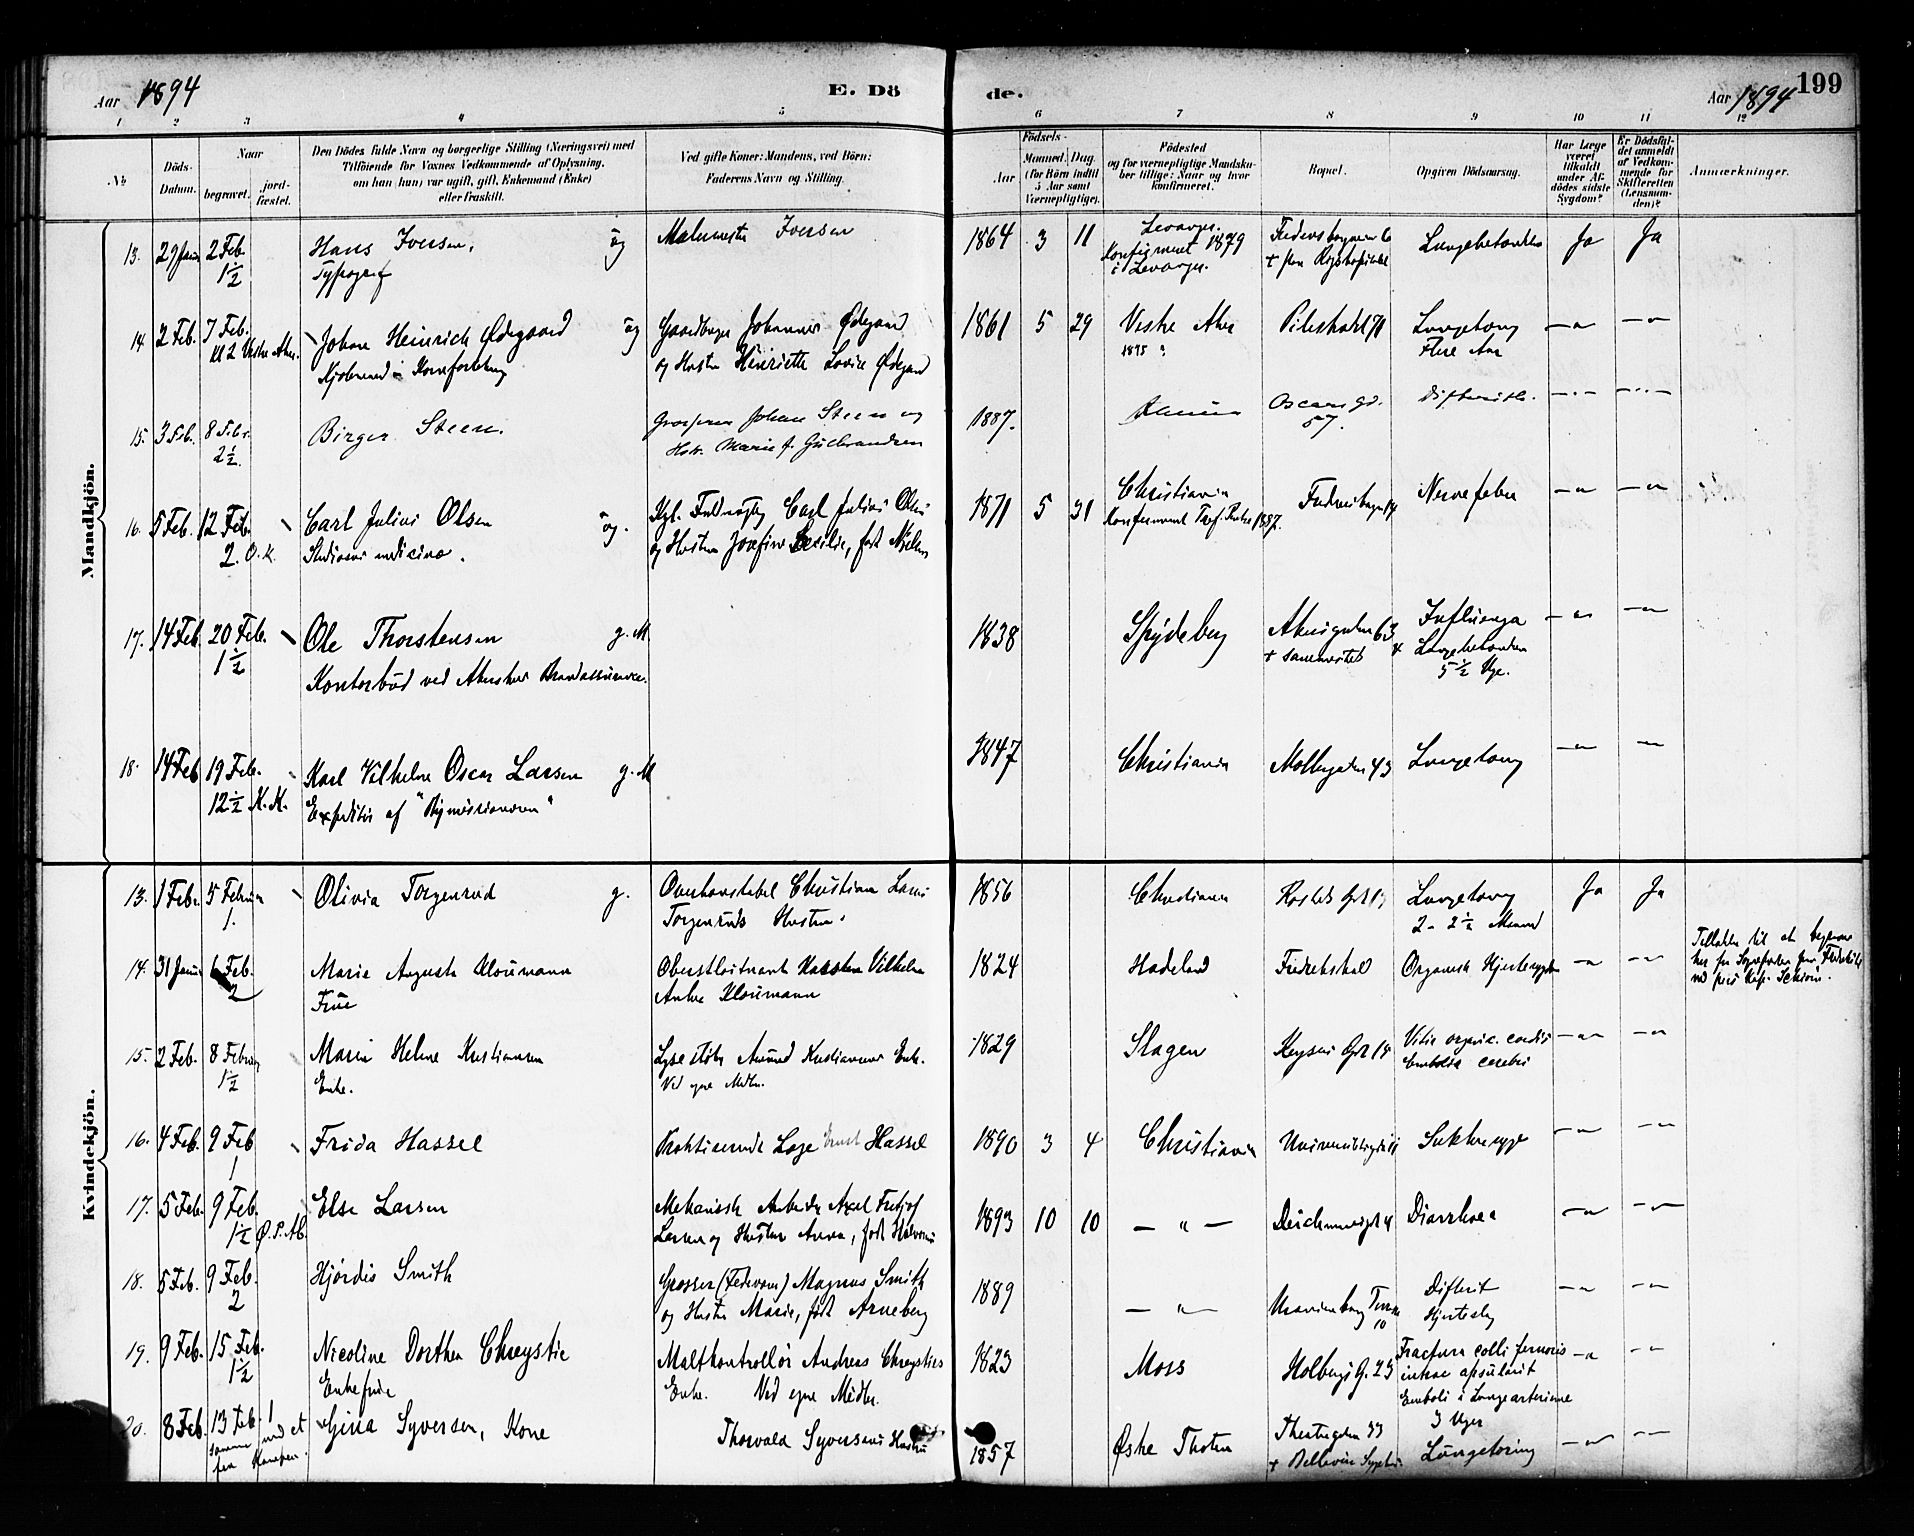 Aar 1894
E. Dö
de.
Aar 1894
199
1 2 3 4 5 6 7 8 9 10 11 12
No
Döds-Datum.
Naar
begravet.
jord-fæstet.
Den Dödes fulde Navn og borgerlige Stilling (Næringsvei) med
Tilföiende for Voxnes Vedkommende af Oplysning,
om han (hun) var ugift, gift, Enkemand (Enke)
eller fraskilt.
Ved gifte Koner: Mandens, ved Börn:
Faderens Navn og Stilling.
Födsels-
Aar
Maaned.
Dag.
(for Börn indtil
5 Aar samt
Værnepligtige).
Födested
og for værnepligtige Mandsku-
ber tillige: Naar og hvor
konfirmeret.
Bopæl.
Opgiven Dödsaarsag.
Har Læge
været
tilkaldt
under Af-
dödes sidste
Sygdom?
Er Dödsfal-
det anmeldt
af Vedkom-
mende for
Skifteretten
(Lensman-
den)?
Anmærkninger.
Mandkjön.
13. 29 Janu 2 Feb. 1½ Hans Iversen, ug Malermester Iversen 1864 3 11 Levanger Ja Ja
Typograf Konfirmeret 1879
i Levanger.
14 2 Feb. 7 Feb. Kl 2 Vestre Aker. Johan Heinrich Ødegaard ug Gaardbruger Johannes Ødegaard 1861 5 29 Vestre Aker Pilestrædet 71 Lungetæring —"— —"—
og Hustru Henriette Lovise Ødegaard Flere Aar
15. 3 Feb. 8 Feb. 2½. Birger Steen. Johan Steen og 1887. Oscarsgd. 57. Difterit. —"— —"—
Hstr. Marie f. Gulbrandsen
16. 5 Feb. 12 Feb. 2. O.K. Carl Julius Olsen ug. Kgl. Fuldmægtig Carl Julius Olsen 1871 5 31 Christiania Nervefeber —"— —"—
Studiosus medicinæ. og Hustru Josefine Cecilie, født Nielsen Konfirmeret Tref. Kirke 1887.
17. 14 Feb. 20 Feb. 1½ Ole Thorstensen g. M 1838 Spydeberg Akersgaden 63 Influenza —"— —"—
Kontorbud ved Akershus Brandassurance. + sammesteds & Lungebetændelse
5½ Uge.
18. 14 Feb 19 Feb. 12½ K.K. Karl Vilhelm Oscar Larsen g. M 1847 Christiania Møllergaden 43 Lungetæring —"— —"—
Expeditør af "Bymissionæren"
Kvindekjön.
13. 1 Feb. 5 Februar 1. Olivia Torgersrud g. Overkonstabel Christian Lauri 1856 Christiania Lungetæring Ja Ja
Torgersruds Hustru. 2 - 2½ Maaned
14. 31 Janu 6 Feb. 2 Marie Augusta Kloumann Oberstløitnant Karsten Vilhelm 1824 Hadeland Fredrikshald Organisk Hjertesygdom —"— —"—
Frue Anker Kloumann
Tilladelse til at begraves
her fra Sogneprest
15. 2 Feb. 8 Februar 1½ Maren Helene Kristiansen Lysestøber Amund Kristiansens Enke. 1829 Slagen Keysers Gd 14 Vitie organic. cordis —"— —"—
Enke. Ved egne Midler. Embolia cerebri
16. 4 Feb. 9 Feb 1 Frida Hassel Praktiserende Læge Ernst Hassel 1890 3 4 Christiania Sukkersyge —"— —"—
17. 5 Feb. 9 Feb. 1½ Ø.P.Ab. Else Larsen Mekanisk Arbeider Axel Fritjof 1893 10 10 — " — Deichmansgd 4 Diarrhoea —"— —"—
Larsen og Hustru Anna, født Halvorsen
18. 5 Feb. 9 Feb. 2 Hjørdis Smith Grosser (Fedevarer) Magnus Smith 1889 — " — Uranienborg Terrasse 10 Difterit —"— —"—
og Hustru Marie, født Arneberg Hjerteslag
19. 9 Feb. 15 Feb. 1½ Nicoline Dorthea Chrystie Maltkontrollør Andreas Chrysties 1823 Moss Holbergs G. 23 Fractura colli femoris —"— —"—
Enkefrue Enke. Ved egne Midler. intracapsularit
Emboli i Lungearterierne
3 Uger
20. 8 Feb. 13 Feb. 1 Gina Syversen, Kone Thorvald Syversens Hustru 1857 Østre Thoten Theatergaden 33 Lungetæring —"— —"—